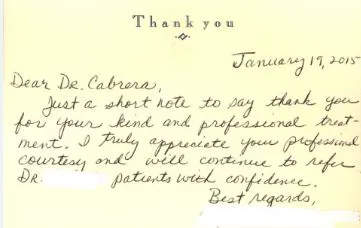 Thank you
January 19, 2015
Dear Dr. Cabrera,
Just a short note to say thank you
for your kind and professional treat-
ment. I truly appreciate your professional
courtesy and will continue to refer
DR. patients with confidence.
Best regards,